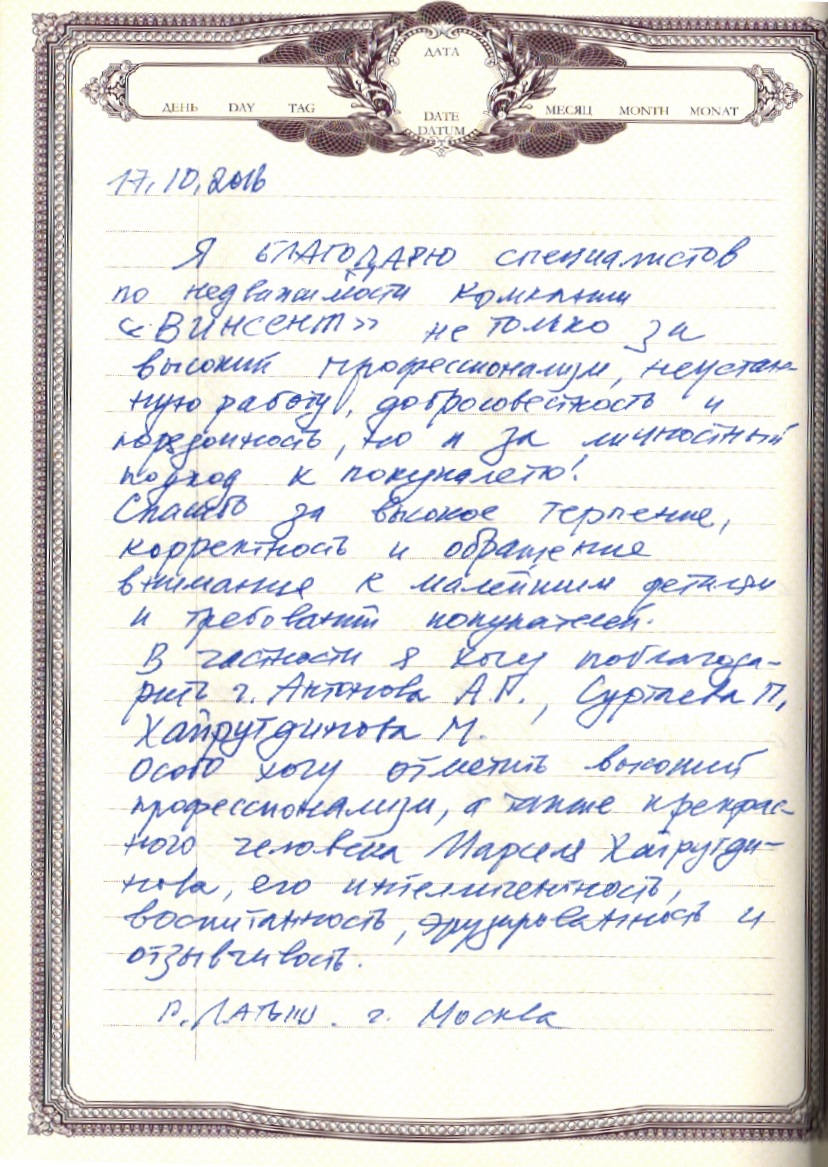 ДАТА
ДЕНЬ DAY TAG
DATE
DATUM
МЕСЯЦ MONTH MONAT
17.10.2016
Я БЛАГОДАРЮ специалистов
по недвижимости компании
«ВИНСЕНТ» не только за
высокий профессионализм, неустан-
ную работу, добросовестность и
порядочность, но и за личностный
подход к покупателю!
Спасибо за высокое терпение,
корректность и обращение
внимания к малейшим деталям
и требований покупателей.
В частности я хочу поблагода-
рить г. Антонова А.Г., Суртаева П,
Хайрутдинова М.
Особо хочу отметить высокий
профессионализм, а также прекрас-
ного человека Марселя Хайрутди-
нова, его интеллигентность,
воспитанность, эрудированность и
отзывчивость.
ЛАТЫШ. г. Москва